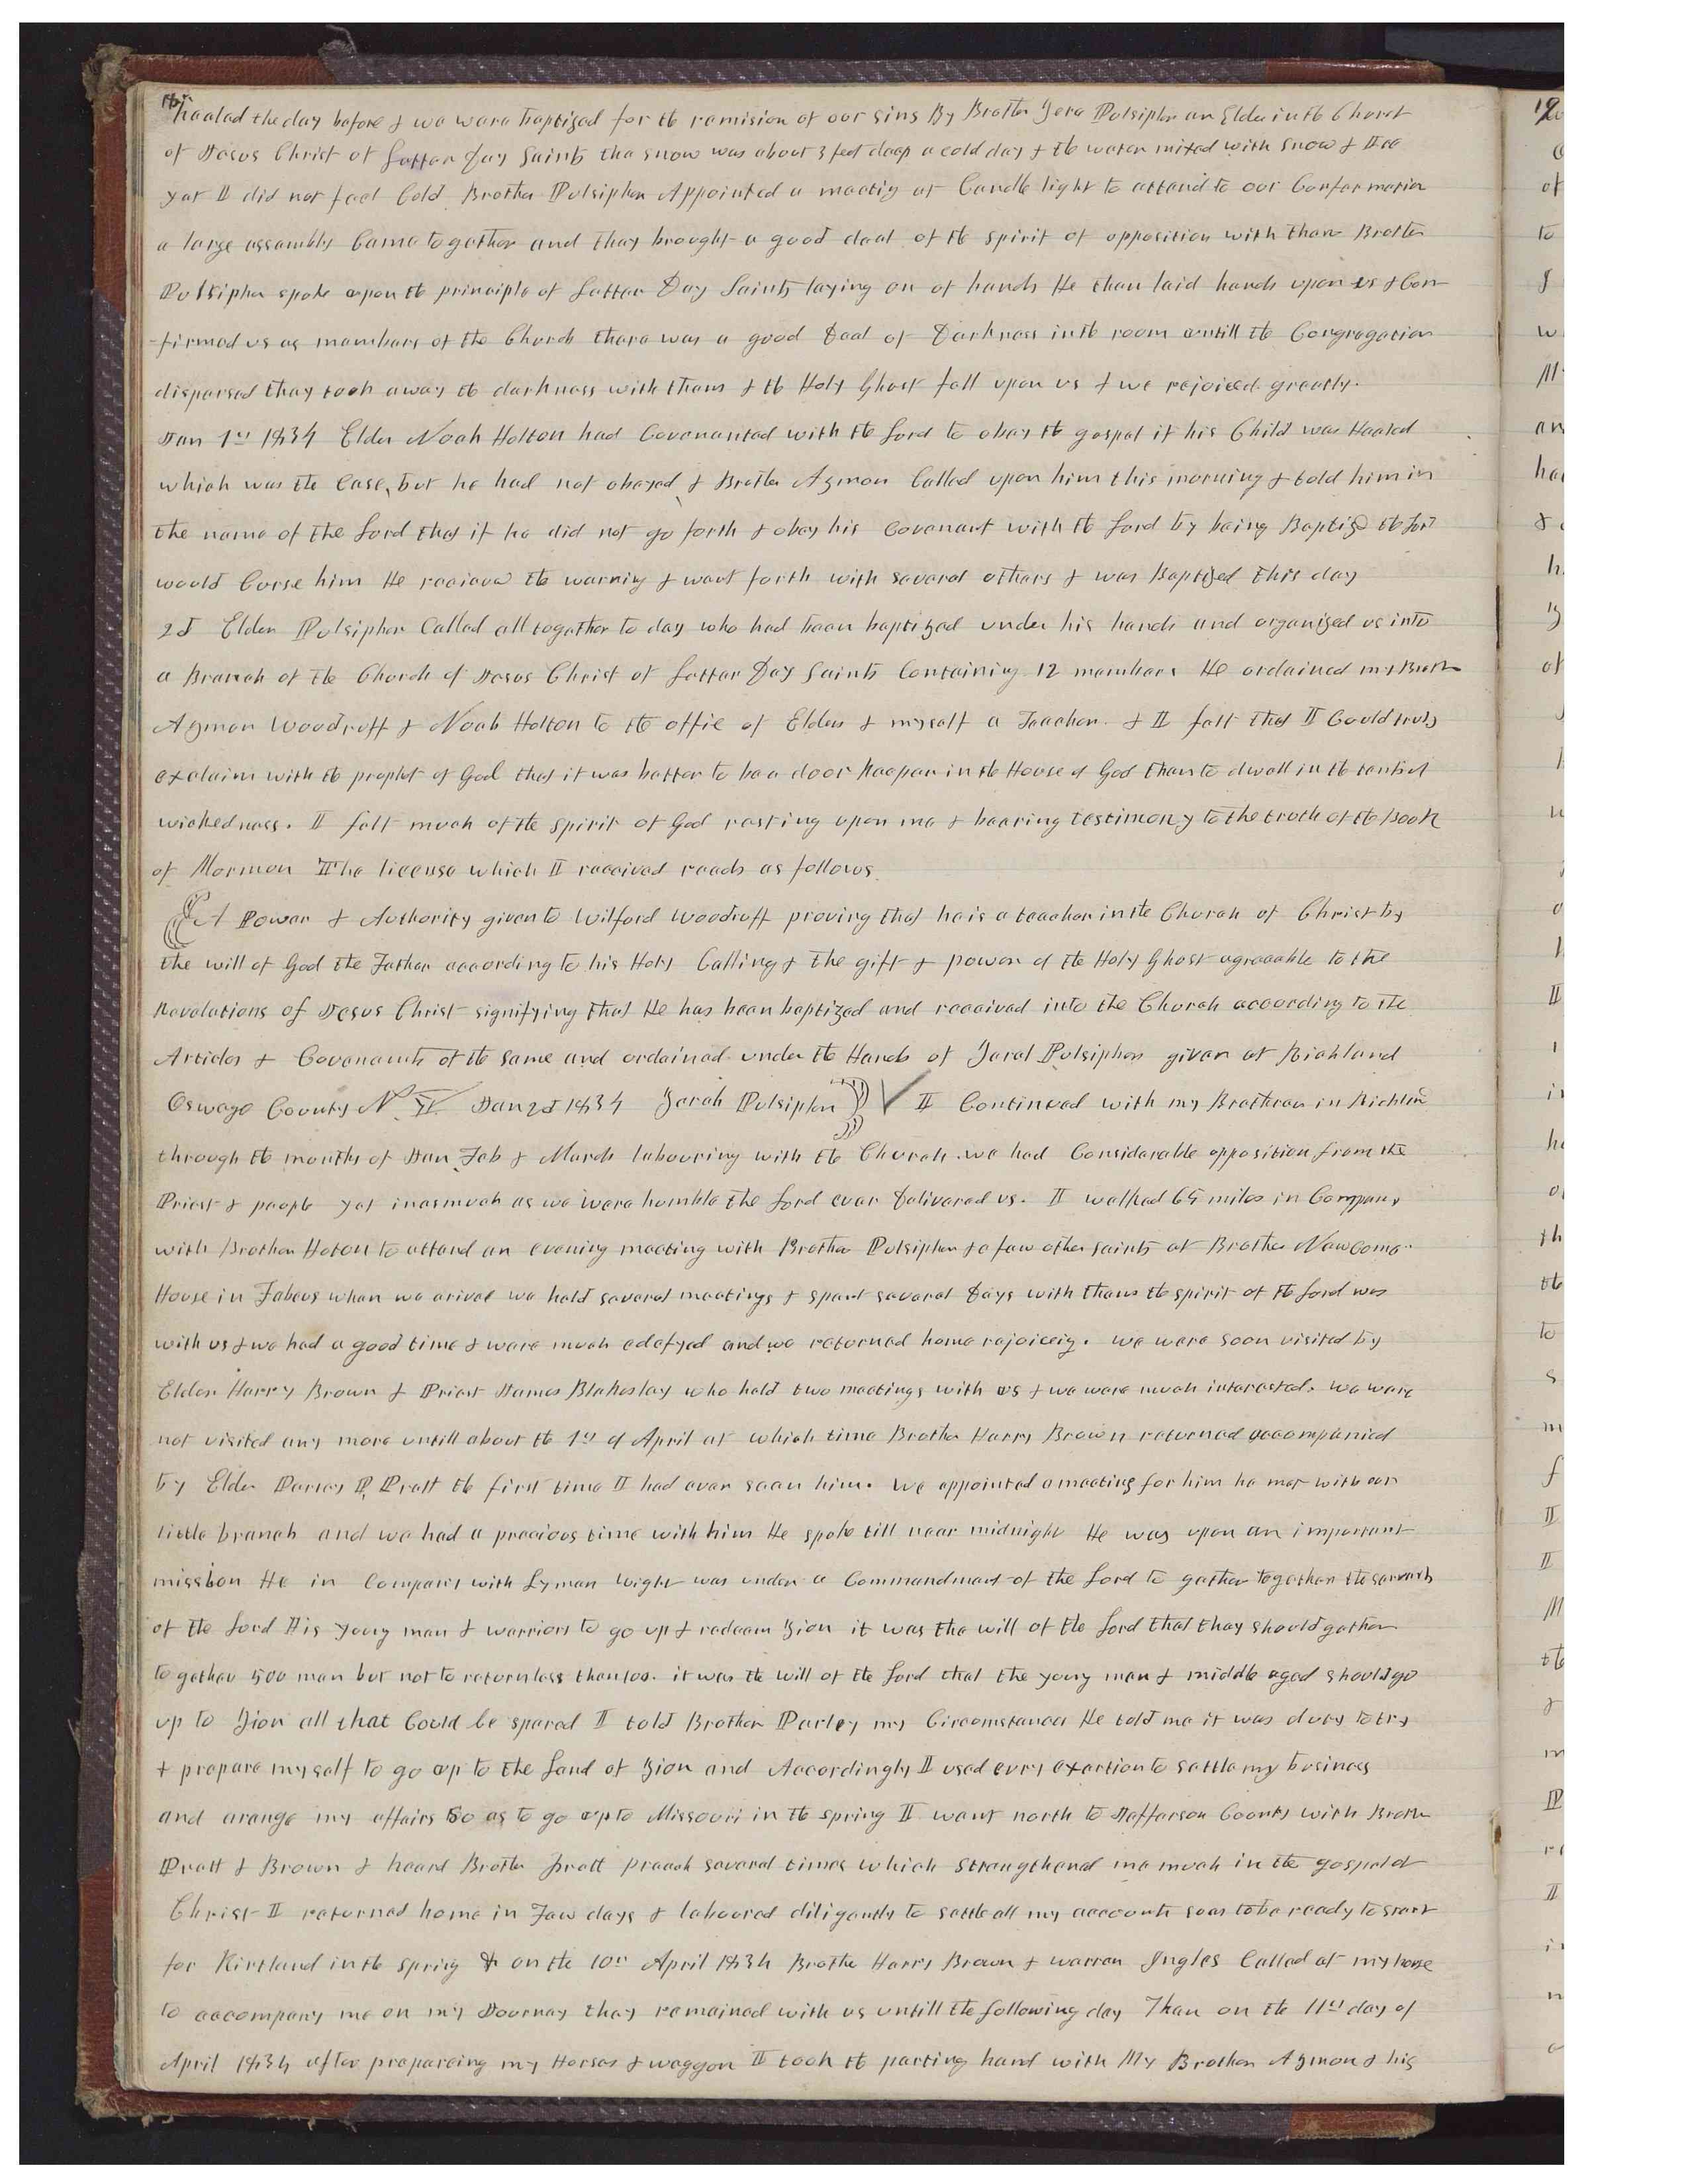 healed the day before & we were baptized for the remision of our sins By Brother Zera Pulsipher an Elder in the Church
of Jesus Christ of Latter Day Saints the snow was about 3 feet deep a cold day & the water mixed with snow & Ice
yet I did not feel Cold Brother Pulsipher Appointed a meetig at Candle light to attend to our Confermation
a large assembly Came together and they brought a good deal of the spirit of opposition with them Brother
Pulsipher spoke upon the principle of Latter Day Saints laying on of hands He then laid hands upon us & Con
-firmed us as members of the Church there was a good Deal of Darkness in the room untill the Congregation
dispersed they took away the darkness with them & the Holy Ghost fell upon us & we rejoiced greatly.
Jan 1st 1834 Elder Noah Holton had Covenanted with the Lord to obey the gospel if his Child was Healed
which was the Case, but he had not obeyed, & Brother Azmon Called upon him this morning & told him in
the name of the Lord that if he did not go forth & obey his Covenant with the Lord by being Baptized the Lord
would Curse him He recieved the warnig & went forth with several others & was Baptized this day
2d Elder Pulsipher Called all together to day who had been baptized under his hands and organized us into
a Branch of the Church of Jesus Christ of Latter Day Saints Containing 12 members He ordained my Brother
Azmon Woodruff & Noah Holton to the offie of Elders & myself a Teacher. & I felt that I Could truly
exclaim with the prophet of God that it was better to be a door keeper in the House of God than to dwell in the tents of
wickedness. I felt much of the spirit of God resting upon me & bearing testimony to the truth of the Book
of Mormon The license which I received reads as follows
A Power & Authority given to Wilford Woodruff proving that he is a teacher in the Church of Christ by
the will of God the Father according to his Holy Calling & the gift & power of the Holy Ghost agreeable to the
Revelations of Jesus Christ signifying that He has been baptized and received into the Church according to the
Articles & Covenants of the same and ordained under the Hands of Zarah Pulsipher given at Richland
Oswego County N. Y. Jan 2d 1834 Zerah Pulsipher I Continued with my Brethren in Richland
through the months of Jan, Feb & March labouring with the Church. we had Considerable opposition from the
Priest & people yet inasmuch as we were humble the Lord ever Delivered us. I walked 65 miles in Company
with Brother Hoton to attend an evening meeting with Brother Pulsipher & a few other saints at Brother Newcoms
House in Fabeus when we arived we held several meetings & spent several Days with them the spirit of the Lord was
with us & we had a good time & were much edefyed and we returned home rejoiceig. we were soon visited by
Elder Harry Brown & Priest James Blakesley who held two meetings with us & we were much interested. we were
not visited any more untill about the 1st of April at which time Brother Harry Brown returned accompanied
by Elder Parley P. Pratt the first time I had ever seen him. We appointed a meeting for him he met with our
little branch and we had a precious time with him He spoke till near midnight He was upon an important
mission He in Company with Lyman Wight was under a Commandment of the Lord to gether together the servants
of the Lord His young men & warriors to go up & redeem Zion it was the will of the Lord that they should gether
together 500 men but not to return less than 100. it was the will of the Lord that the young men & middle aged should go
up to Zion all that Could be spared I told Brother Parley my Circumstances He told me it was duty to try
& prepare myself to go up to the Land of Zion and Accordingly I used evry exertion to settle my business
and arange my affairs so as to go up to Missouri in the spring I went north to Jefferson County with Brother
Pratt & Brown & heard Brother Pratt preach several times which strengthened me much in the gospel of
Christ I returned home in Few days & laboured diligently to settle all my accounts so as to be ready to start
for Kirtland in the sprig & on the 10th April 1834 Brother Harry Brown & warren Ingles Called at my house
to accompany me on my Journey they remained with us untill the following day Then on the 11th day of
April 1834 after prepareing my Horses & waggon I took the parting hand with My Brother Azmon & his